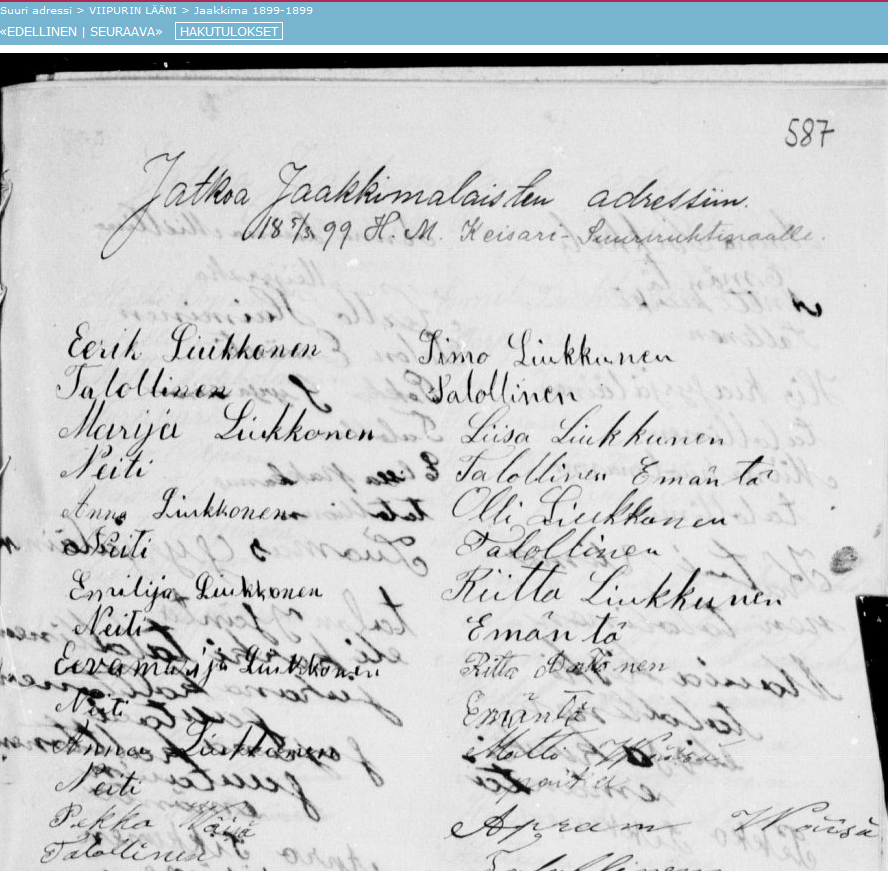 Suuri adressi > VIIPURIN LÄÄNI > Jaakkima 1899-1899
«EDELLINEN | SEURAAVA» HAKUTULOKSET
587
Jatkoa Jaakkimalaisten adressiin.
18 5/3 99 H. M. Keisari-Suuriruhtinaalle.
Eerik Liukkonen
Talollinen
Marija Liukkonen
Neiti
Anna Liukkonen
Neiti
Emilija Liukkonen
Neiti
Eevamarija Liukkonen
Neiti
Anna Liukkonen
Neiti
Pekka Wäisä
Talollinen
Timo Liukkunen
Talollinen
Liisa Liukkunen
Talollinen Emäntä
Olli Liukkonen
Talollinen
Riitta Liukkunen
Emäntä
Ritta
Emäntä
Matti
Apram Wäisä
Talollinen